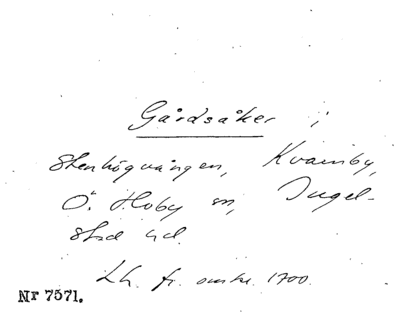 Gårdsåker i
Stenhögvången, Kvarnby,
Ö. Hoby sn, Ingel-
stad hd.
Lh. fr. omkr. 1700.
Nr 7571.